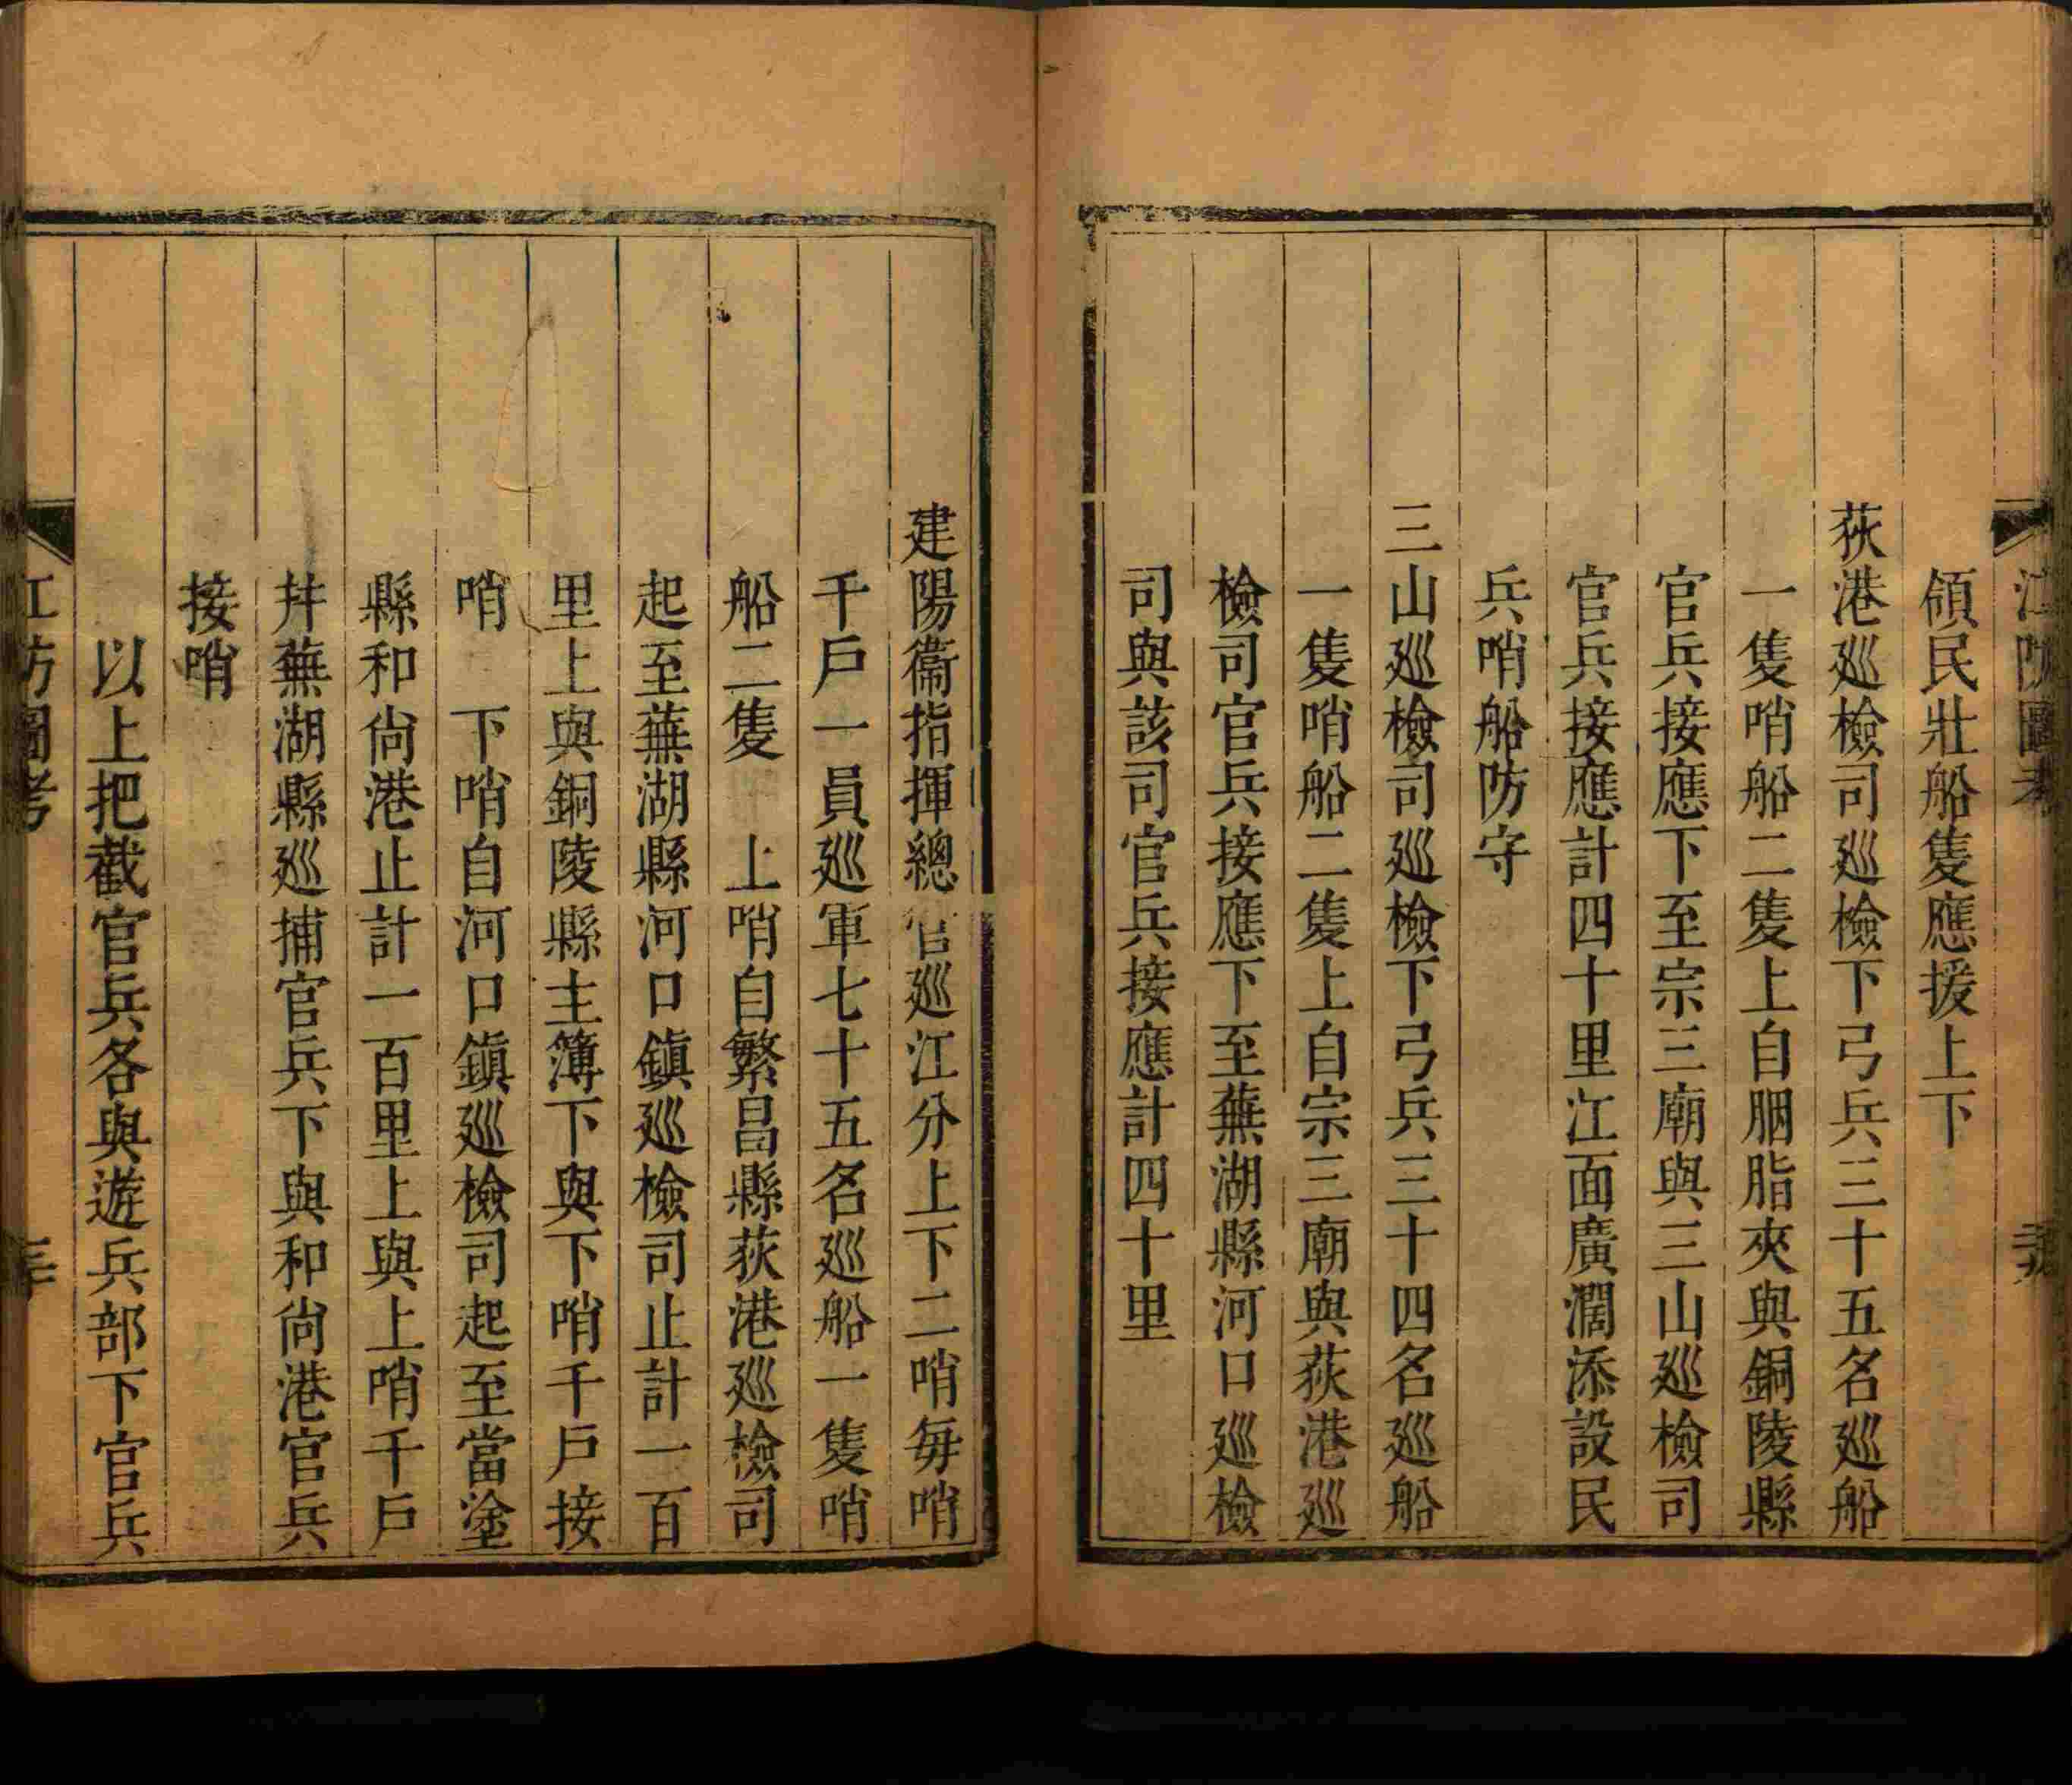 江防圖考
領民壯船隻應援上下
荻港廵檢司廵檢下弓兵三十五名廵船
一隻哨船二隻上自胭脂夾與銅陵縣
官兵接應下至宗三廟與三山廵檢司
官兵接應計四十里江面廣濶添設民
兵哨船防守
三山廵檢司廵檢下弓兵三十四名廵船
一隻哨船二隻上自宗三廟與荻港廵
檢司官兵接應下至蕪湖縣河口廵檢
司與該司官兵接應計四十里
建陽衞指揮總官廵江分上下二哨每哨
千戶一員廵軍七十五名廵船一隻哨
船二隻　上哨自繁昌縣荻港廵檢司
起至蕪湖縣河口鎮廵檢司止計一百
里上與銅陵縣主簿下與下哨千戶接
哨　下哨自河口鎮廵檢司起至當塗
縣和尙港止計一百里上與上哨千戶
幷蕪湖縣廵捕官兵下與和尙港官兵
接哨
以上把截官兵各與遊兵部下官兵
江防圖考